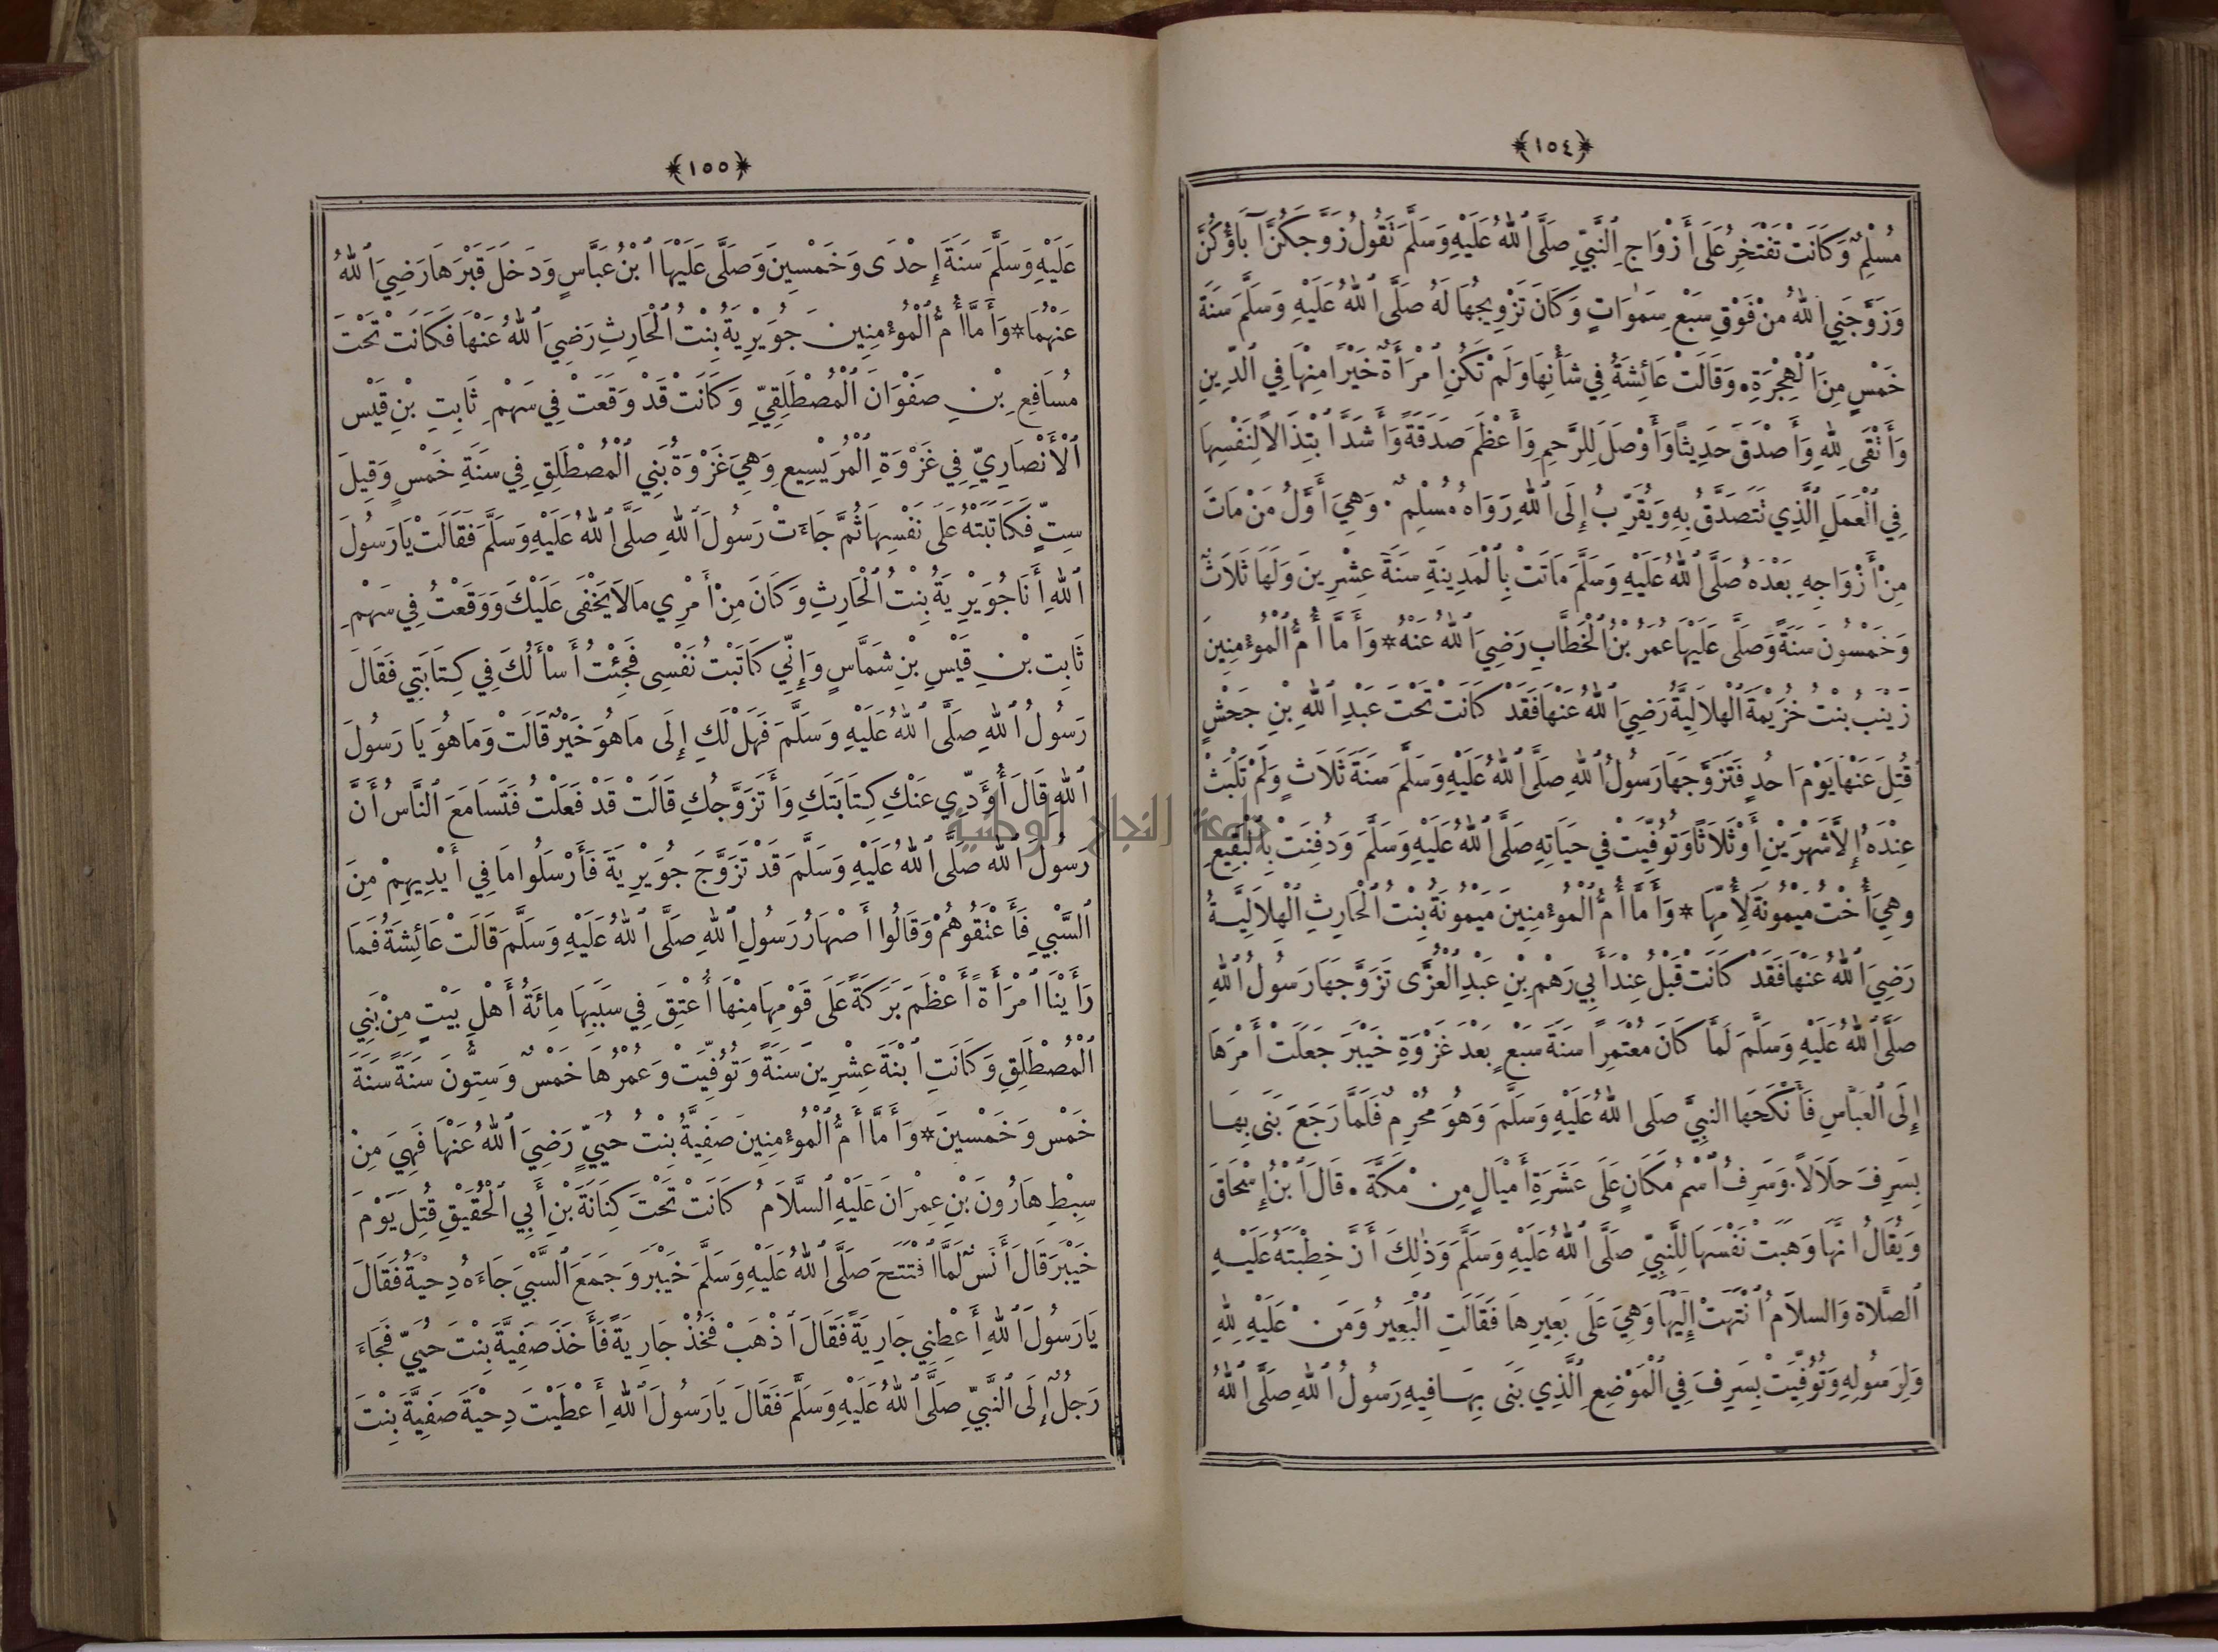 ﴿١٥٤﴾
مُسْلِمٌ وَكَانَتْ تَفْتَخِرُ عَلَى أَزْوَاجِ ٱلنَّبِيِّ صَلَّى ٱللهُ عَلَيْهِ وَسَلَّمَ تَقُولُ زَوَّجَكُنَّ آبَاؤُكُنَّ
وَزَوَّجَنِي ٱللهُ مِنْ فَوْقِ سَبْعِ سَمٰوَاتٍ وَكَانَ تَزْوِيجُهَا لَهُ صَلَّى ٱللهُ عَلَيْهِ وَسَلَّمَ سَنَةَ
خَمْسٍ مِنَ ٱلْهِجْرَةِ. وَقَالَتْ عَائِشَةُ فِي شَأْنِهَا وَلَمْ تَكُنِ ٱمْرَأَةٌ خَيْرًا مِنْهَا فِي ٱلدِّينِ
وَأَتْقَى لِلهِ وَأَصْدَقَ حَدِيثًا وَأَوْصَلَ لِلرَّحِمِ وَأَعْظَمَ صَدَقَةً وَأَشَدَّ ٱبْتِذَالًا لِنَفْسِهَا
فِي ٱلْعَمَلِ ٱلَّذِي تَتَصَدَّقُ بِهِ وَيُقَرِّبُ إِلَى ٱللهِ رَوَاهُ مُسْلِمٌ. وَهِيَ أَوَّلُ مَنْ مَاتَ
مِنْ أَزْوَاجِهِ بَعْدَهُ صَلَّى ٱللهُ عَلَيْهِ وَسَلَّمَ مَاتَتْ بِٱلْمَدِينَةِ سَنَةَ عِشْرِينَ وَلَهَا ثَلَاثٌ
وَخَمْسُونَ سَنَةً وَصَلَّى عَلَيْهَا عُمَرُ بْنُ ٱلْخَطَّابِ رَضِيَ ٱللهُ عَنْهُ * وَأَمَّا أُمُّ ٱلْمُؤْمِنِينَ
زَيْنَبُ بِنْتُ خُزَيْمَةَ ٱلْهِلَالِيَّةُ رَضِيَ ٱللهُ عَنْهَا فَقَدْ كَانَتْ تَحْتَ عَبْدِ ٱللهِ بْنِ جَحْشٍ
قُتِلَ عَنْهَا يَوْمَ أُحُدٍ فَتَزَوَّجَهَا رَسُولُ ٱللهِ صَلَّى ٱللهُ عَلَيْهِ وَسَلَّمَ سَنَةَ ثَلَاثٍ وَلَمْ تَلْبَثْ
عِنْدَهُ إِلَّا شَهْرَيْنِ أَوْ ثَلَاثًا وَتُوُفِّيَتْ فِي حَيَاتِهِ صَلَّى ٱللهُ عَلَيْهِ وَسَلَّمَ وَدُفِنَتْ بِٱلْبَقِيعِ
وَهِيَ أُخْتُ مَيْمُونَةَ لِأُمِّهَا * وَأَمَّا أُمُّ ٱلْمُؤْمِنِينَ مَيْمُونَةُ بِنْتُ ٱلْحَارِثِ ٱلْهِلَالِيَّةُ
رَضِيَ ٱللهُ عَنْهَا فَقَدْ كَانَتْ قَبْلُ عِنْدَ أَبِي رَهْمِ بْنِ عَبْدِ ٱلْعُزَّى تَزَوَّجَهَا رَسُولُ ٱللهِ
صَلَّى ٱللهُ عَلَيْهِ وَسَلَّمَ لَمَّا كَانَ مُعْتَمِرًا سَنَةَ سَبْعٍ بَعْدَ غَزْوَةِ خَيْبَرَ جَعَلَتْ أَمْرَهَا
إِلَى ٱلْعَبَّاسِ فَأَنْكَحَهَا النَّبِيَّ صَلَّى اللهُ عَلَيْهِ وَسَلَّمَ وَهُوَ مُحْرِمٌ فَلَمَّا رَجَعَ بَنَى بِهَا
بِسَرِفَ حَلَالًا. وَسَرِفُ ٱسْمُ مَكَانٍ عَلَى عَشَرَةِ أَمْيَالٍ مِنْ مَكَّةَ. قَالَ ٱبْنُ إِسْحَاقَ
وَيُقَالُ انَّهَا وَهَبَتْ نَفْسَهَا لِلنَّبِيِّ صَلَّى ٱللهُ عَلَيْهِ وَسَلَّمَ وَذٰلِكَ أَنَّ خِطْبَتَهُ عَلَيْهِ
ٱلصَّلَاة وَالسلَامُ ٱنْتَهَتْ إِلَيْهَا وَهِيَ عَلَى بَعِيرِهَا فَقَالَتِ ٱلْبَعِيرُ وَمَنْ عَلَيْهِ لِلهِ
وَلِرَسُولِهِ وَتُوُفِّيَتْ بِسَرِفَ فِي ٱلْمَوْضِعِ ٱلَّذِي بَنَى بِهَا فِيهِ رَسُولُ ٱللهِ صَلَّى ٱللهُ
﴿١٥٥﴾
عَلَيْهِ وَسَلَّمَ سَنَةَ إِحْدَى وَخَمْسِينَ وَصَلَّى عَلَيْهَا ٱبْنُ عَبَّاسٍ وَدَخَلَ قَبْرَهَا رَضِيَ ٱللهُ
عَنْهُمَا * وَأَمَّا أُمُّ ٱلْمُؤْمِنِينَ جُوَيْرِيَةُ بِنْتُ ٱلْحَارِثِ رَضِيَ ٱللهُ عَنْهَا فَكَانَتْ تَحْتَ
مُسَافِعِ بْنِ صَفْوَانَ ٱلْمُصْطَلِقِيِّ وَكَانَتْ قَدْ وَقَعَتْ فِي سَهْمِ ثَابِتِ بْنِ قَيْسٍ
ٱلْأَنْصَارِيِّ فِي غَزْوَةِ ٱلْمُرَيْسِيعِ وَهِيَ غَزْوَةُ بَنِي ٱلْمُصْطَلِقِ فِي سَنَةِ خَمْسٍ وَقِيلَ
سِتٍّ فَكَاتَبَتْهُ عَلَى نَفْسِهَا ثُمَّ جَاءَتْ رَسُولَ ٱللهِ صَلَّى ٱللهُ عَلَيْهِ وَسَلَّمَ فَقَالَتْ يَا رَسُولَ
ٱللهِ أَنَا جُوَيْرِيَةُ بِنْتُ ٱلْحَارِثِ وَكَانَ مِنْ أَمْرِي مَا لَا يَخْفَى عَلَيْكَ وَوَقَعْتُ فِي سَهْمِ
ثَابِتِ بْنِ قَيْسِ بْنِ شَمَّاسٍ وَإِنِّي كَاتَبْتُ نَفْسِي فَجِئْتُ أَسْأَلُكَ فِي كِتَابَتِي فَقَالَ
رَسُولُ ٱللهِ صَلَّى ٱللهُ عَلَيْهِ وَسَلَّمَ فَهَلْ لَكِ إِلَى مَا هُوَ خَيْرٌ قَالَتْ وَمَا هُوَ يَا رَسُولَ
ٱللهِ قَالَ أُؤَدِّي عَنْكِ كِتَابَتَكِ وَأَتَزَوَّجُكِ قَالَتْ قَدْ فَعَلْتُ فَتَسَامَعَ ٱلنَّاسُ أَنَّ
رَسُولَ ٱللهِ صَلَّى ٱللهُ عَلَيْهِ وَسَلَّمَ قَدْ تَزَوَّجَ جُوَيْرِيَةَ فَأَرْسَلُوا مَا فِي أَيْدِيهِمْ مِنَ
ٱلسَّبْيِ فَأَعْتَقُوهُمْ وَقَالُوا أَصْهَارُ رَسُولِ ٱللهِ صَلَّى ٱللهُ عَلَيْهِ وَسَلَّمَ قَالَتْ عَائِشَةُ فَمَا
رَأَيْنَا ٱمْرَأَةً أَعْظَمَ بَرَكَةً عَلَى قَوْمِهَا مِنْهَا أُعْتِقَ فِي سَبَبِهَا مِائَةُ أَهْلِ بَيْتٍ مِنْ بَنِي
ٱلْمُصْطَلِقِ وَكَانَتِ ٱبْنَةَ عِشْرِينَ سَنَةً وَتُوُفِّيَتْ وَعُمْرُهَا خَمْسٌ وَسِتُّونَ سَنَةً سَنَةَ
خَمْسٍ وَخَمْسِينَ * وَأَمَّا أُمُّ ٱلْمُؤْمِنِينَ صَفِيَّةُ بِنْتُ حُيَيٍّ رَضِيَ ٱللهُ عَنْهَا فَهِيَ مِنْ
سِبْطِ هَارُونَ بْنِ عِمْرَانَ عَلَيْهِ ٱلسَّلَامُ كَانَتْ تَحْتَ كِنَانَةَ بْنِ أَبِي ٱلْحُقَيْقِ قُتِلَ يَوْمَ
خَيْبَرَ قَالَ أَنَسٌ لَمَّا ٱفْتَتَحَ صَلَّى ٱللهُ عَلَيْهِ وَسَلَّمَ خَيْبَرَ وَجَمَعَ ٱلسَّبْيَ جَاءَهُ دِحْيَةُ فَقَالَ
يَا رَسُولَ ٱللهِ أَعْطِنِي جَارِيَةً فَقَالَ ٱذْهَبْ فَخُذْ جَارِيَةً فَأَخَذَ صَفِيَّةَ بِنْتَ حُيَيٍّ فَجَاءَ
رَجُلٌ إِلَى ٱلنَّبِيِّ صَلَّى ٱللهُ عَلَيْهِ وَسَلَّمَ فَقَالَ يَا رَسُولَ ٱللهِ أَعْطَيْتَ دِحْيَةَ صَفِيَّةَ بِنْتَ
جامعة النجاح الوطنية